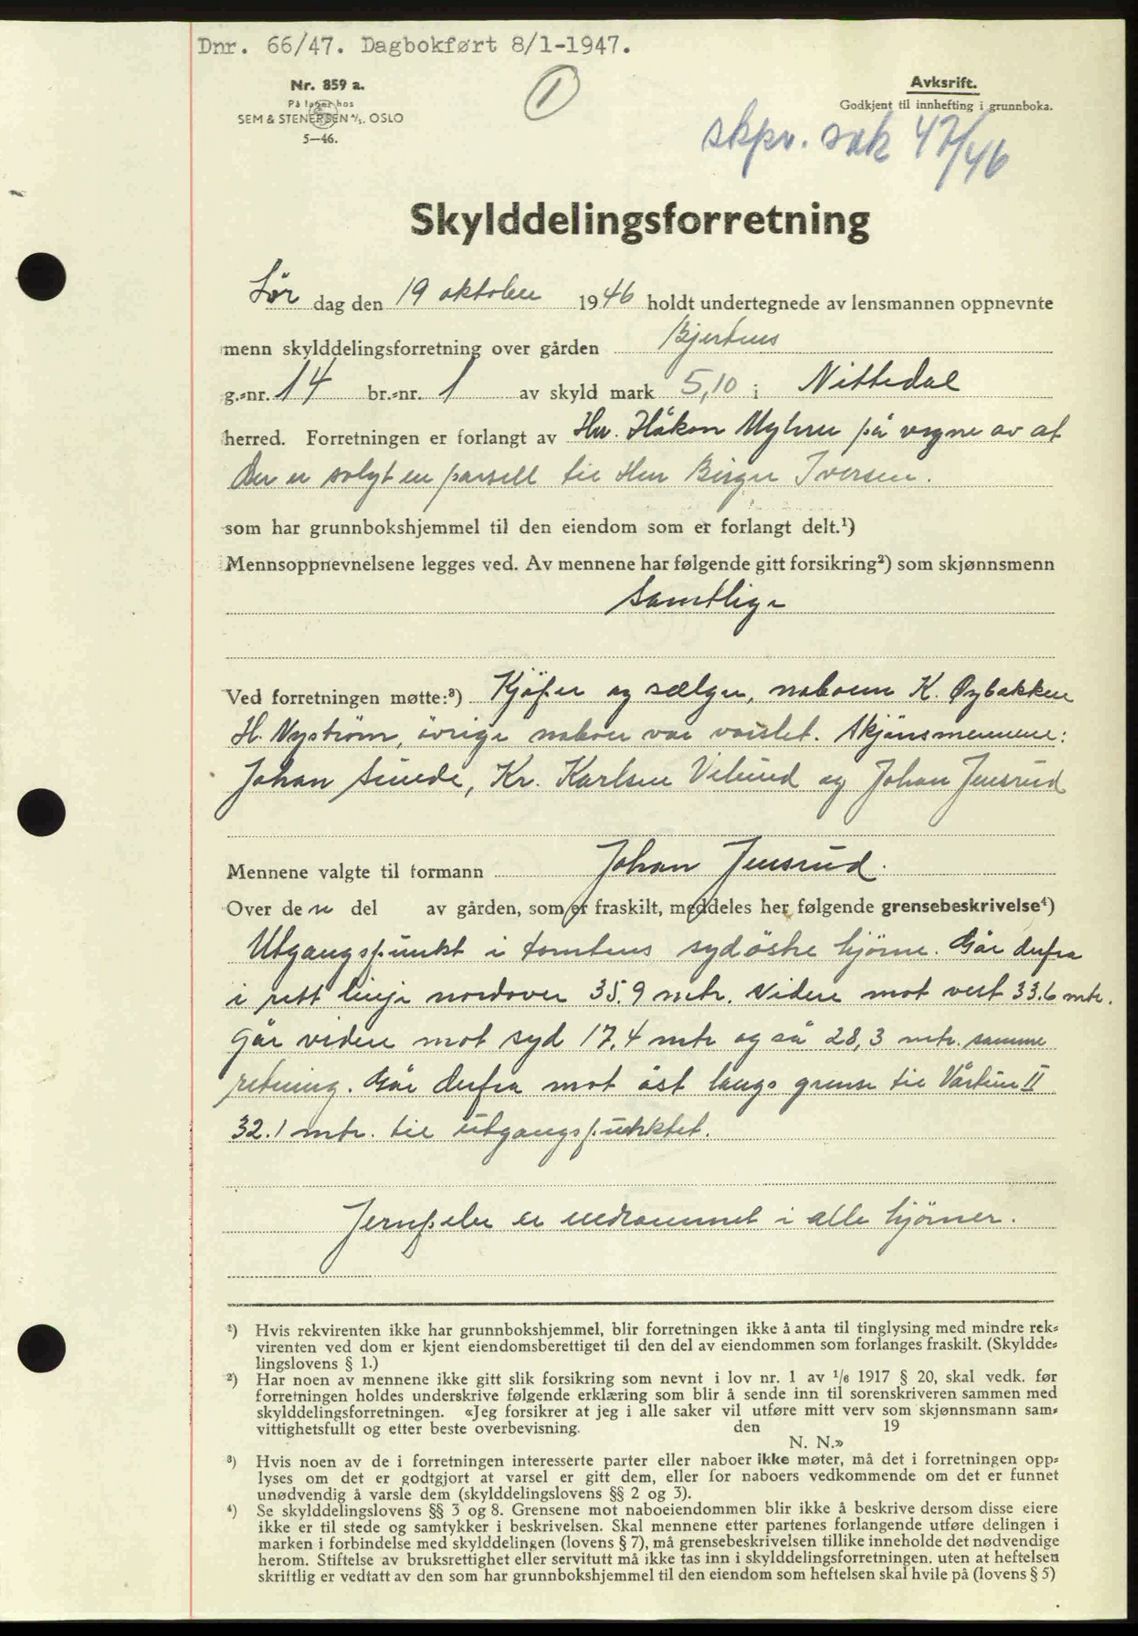 Dnr. 66/47. Dagbokført 8/1-1947.
Nr. 859 a.
På lager hos
SEM & STENERSEN A/S. OSLO
5—46.
1
Avkrift.
Godkjent til innhefting i grunnboka.
skpv. sak 47/46
Skylddelingsforretning
Lør dag den 19 oktober 1946 holdt undertegnede av lensmannen oppnevnte
menn skylddelingsforretning over gården Bjertnes
g.-nr. 14 br.-nr. 1 av skyld mark 5,10 i Nittedal
herred. Forretningen er forlangt av Hr. Håkon Myhrer på vegne av at
Der er solgt en parsell til Herr Birger Iversen.
som har grunnbokshjemmel til den eiendom som er forlangt delt.¹)
Mennsoppnevnelsene legges ved. Av mennene har følgende gitt forsikring²) som skjønnsmenn
Samtlige
Ved forretningen møtte:³) Kjøper og selger, naboene K. Øybakken
H. Nyström, övrige naboer var varslet. Skjönsmennene:
Johan Sunde, Kr. Karlsen Vilund og Johan Jensrud
Mennene valgte til formann Johan Jensrud.
Over den del av gården, som er fraskilt, meddeles her følgende grensebeskrivelse⁴)
Utgangspunkt i tomtens sydöstre hjörne. Går derfra
i rett linje nordover 35.9 mtr. Videre mot vest 33.6 mtr.
Går videre mot syd 17.4 mtr og så 28,3 mtr. samme
retning. Går derfra mot öst langs grense til Vårtun II
32.1 mtr. til utgangspunktet.
Jernpeler er nedrammet i alle hjörner.
¹) Hvis rekvirenten ikke har grunnbokshjemmel, blir forretningen ikke å anta til tinglysing med mindre rek-
virenten ved dom er kjent eiendomsberettiget til den del av eiendommen som forlanges fraskilt. (Skyldde-
lingslovens § 1.)
²) Har noen av mennene ikke gitt slik forsikring som nevnt i lov nr. 1 av 1/6 1917 § 20, skal vedk. før
forretningen holdes underskrive følgende erklæring som blir å sende inn til sorenskriveren sammen med
skylddelingsforretningen. «Jeg forsikrer at jeg i alle saker vil utføre mitt verv som skjønnsmann sam-
vittighetsfullt og etter beste overbevisning. den 19
N. N.»
³) Hvis noen av de i forretningen interesserte parter eller naboer ikke møter, må det i forretningen opp-
lyses om det er godtgjort at varsel er gitt dem, eller for naboers vedkommende om det er funnet
unødvendig å varsle dem (skylddelingslovens §§ 2 og 3).
⁴) Se skylddelingslovens §§ 3 og 8. Grensene mot naboeiendommen blir ikke å beskrive dersom disse eiere
ikke er til stede og samtykker i beskrivelsen. Skal mennene etter partenes forlangende utføre delingen i
marken i forbindelse med skylddelingen (lovens § 7), må grensebeskrivelsen tillike inneholde det nødvendige
herom. Stiftelse av bruksrettighet eller servitutt må ikke tas inn i skylddelingsforretningen. uten at heftelsen
skriftlig er vedtatt av den som har grunnbokshjemmel til den eiendom som heftelsen skal hvile på (lovens § 5)